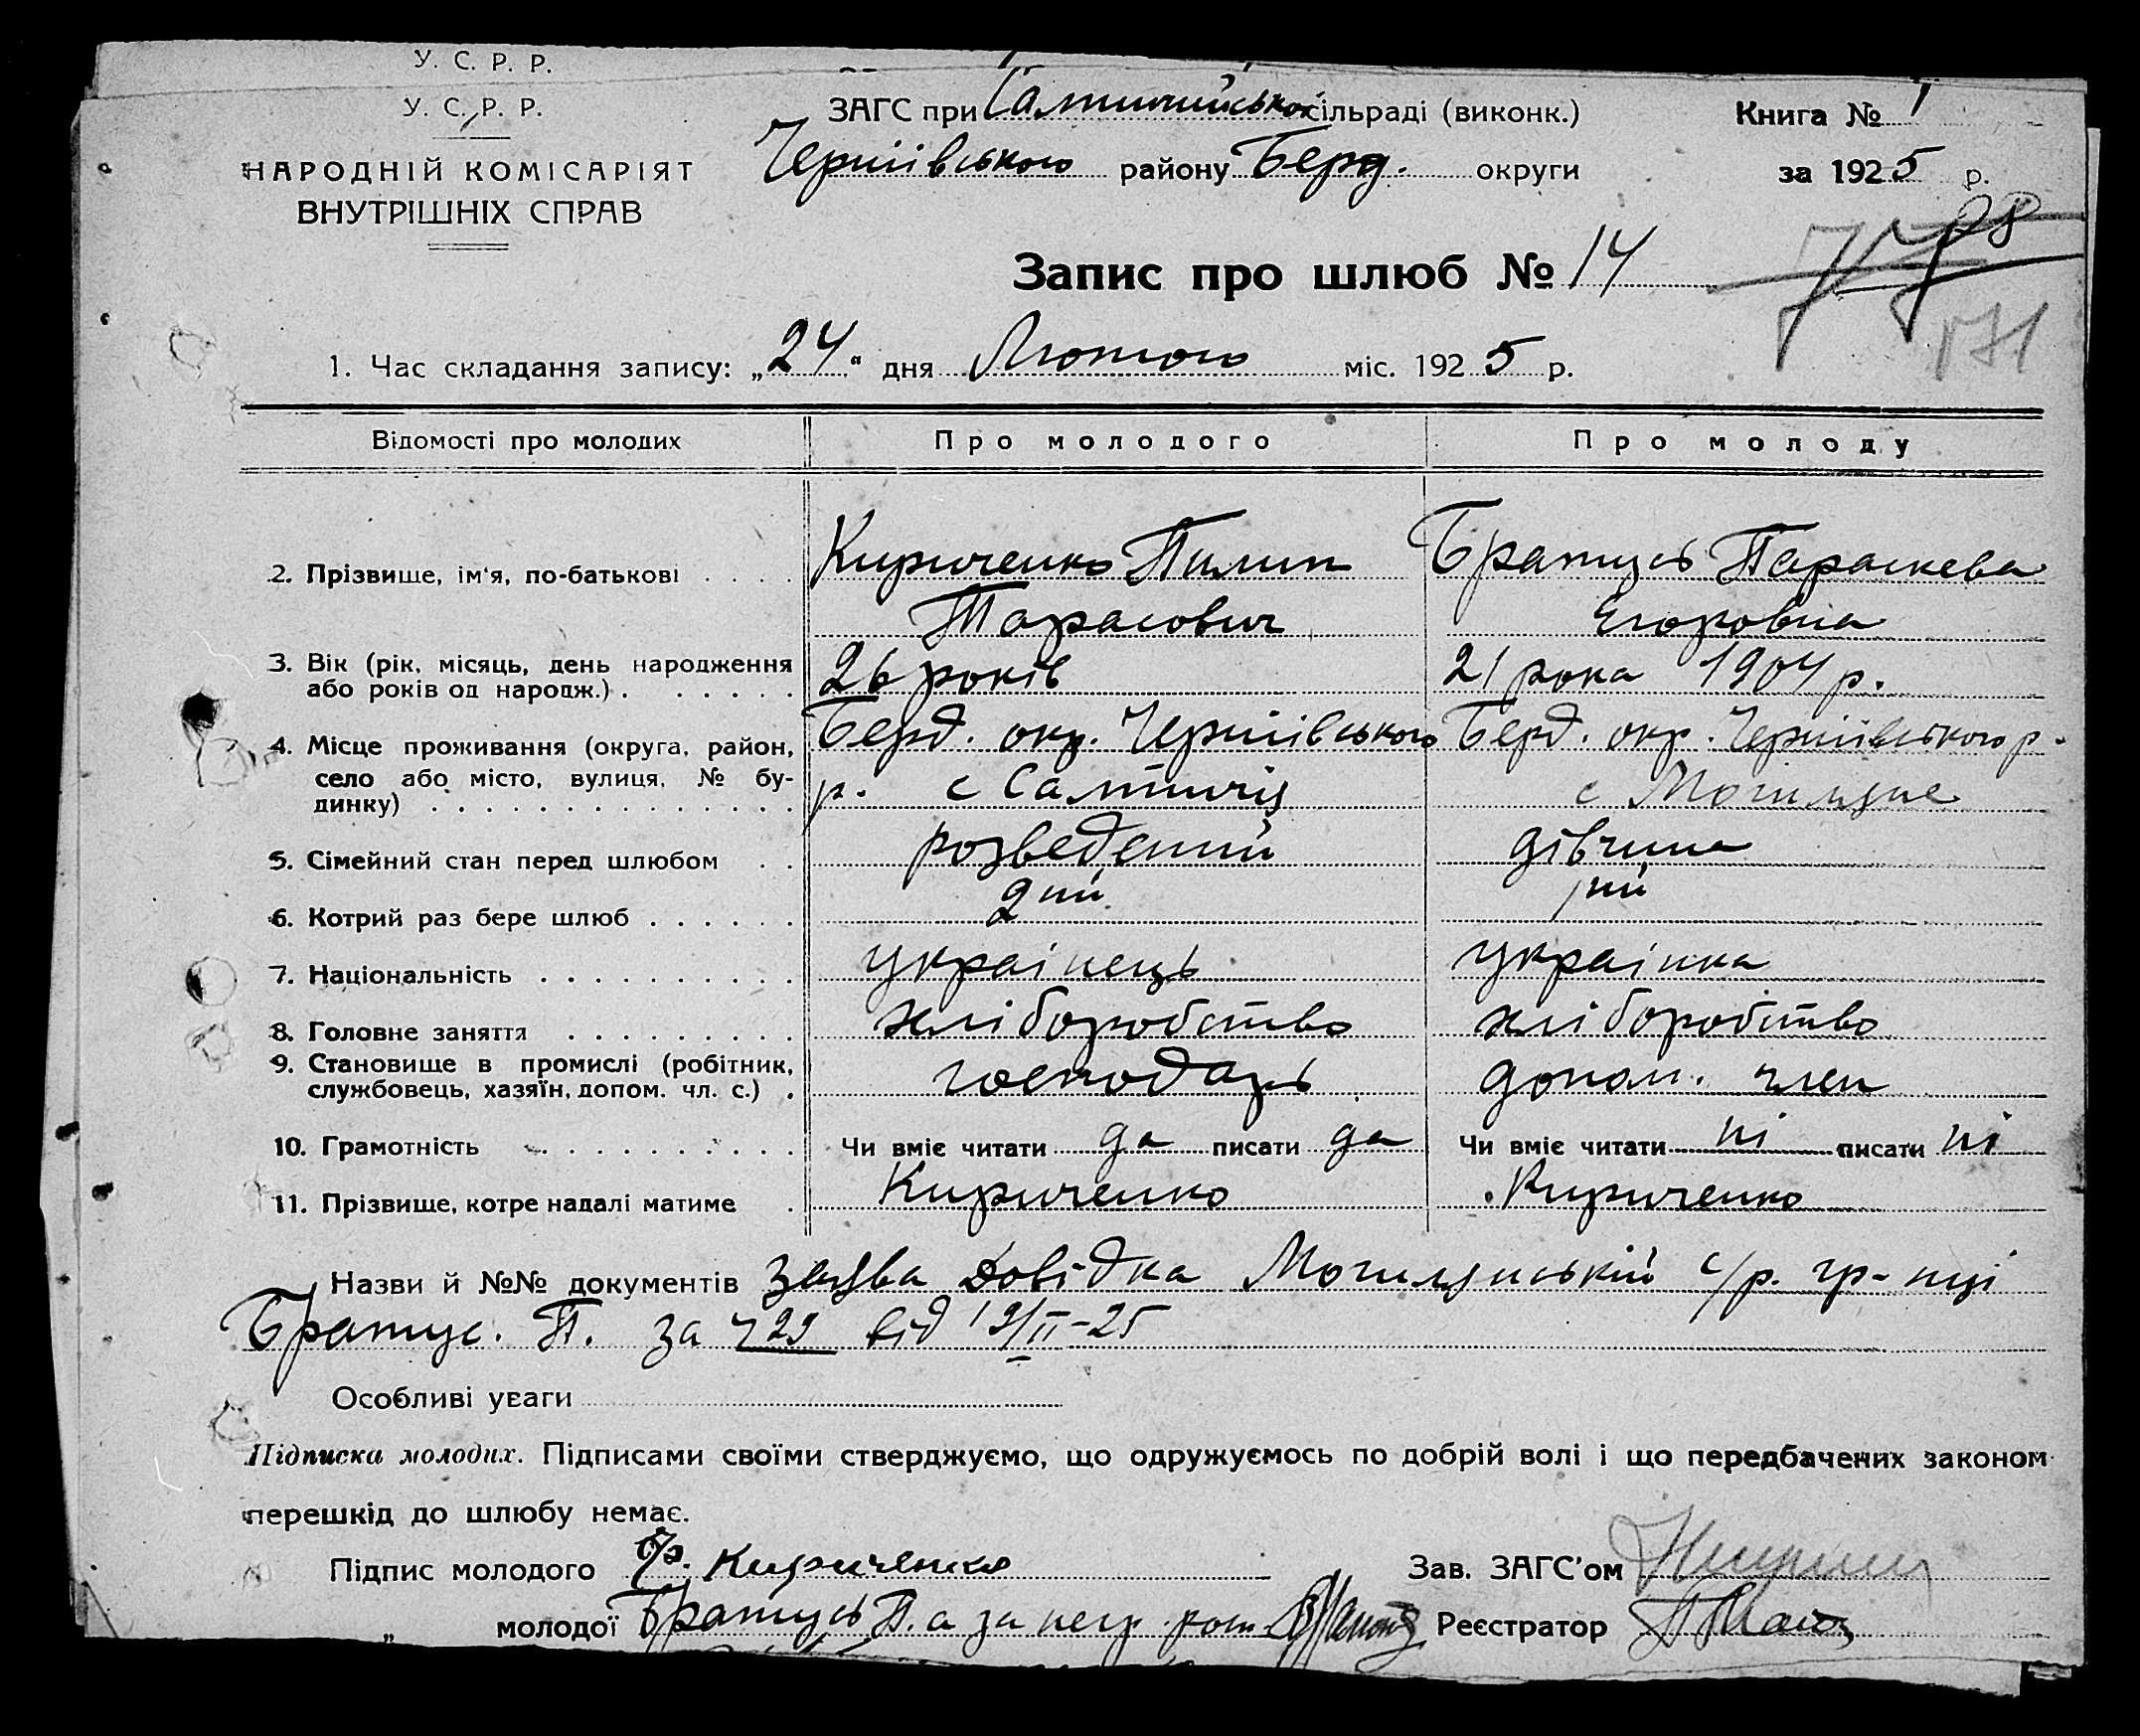 У. С. Р. Р.
У. С. Р. Р.
НАРОДНІЙ КОМІСАРІЯТ
ВНУТРІШНІХ СПРАВ
ЗАГС при Салтичийської сільраді (виконк.)
Черніівського району Берд. округи
Книга № 1
за 1925 р.
Запис про шлюб № 14
98
171
1. Час складання запису: „24“ дня Лютого міс. 1925 р.
Відомості про молодих Про молодого Про молоду
2. Прізвище, ім'я, по-батькові . . . . Кириченко Пилип Братусь Параскева
Тарасович Єгоровна
3. Вік (рік, місяць, день народження
або років од нородж.) . . . . . . . 26 років 21 рока 1904 р.
4. Місце проживання (округа, район, Берд. окр. Черніівського Берд. окр. Черніівського р.
село або місто, вулиця, № бу-
динку) . . . . . . . . . . . . . . р. с Салтичія с Могиляне
5. Сімейний стан перед шлюбом . . розведений дівчина
6. Котрий раз бере шлюб . . . . . . 2ий 1ий
7. Національність . . . . . . . . . . украінець украінка
8. Головне заняття . . . . . . . . . хліборобство хліборобство
9. Становище в промислі (робітник,
службовець, хазяїн, допом. чл. с.) . господарь допом. член
10. Грамотність . . . . . . . . . . Чи вміє читати да писати да Чи вміє читати ні писати ні
11. Прізвище, котре надалі матиме . Кириченко Кириченко
Назви й №№ документів заява довідка Могилянській с/р. гр-нці
Братус. П. за ч 29 від 19/II-25
Особливі уваги
Підписка молодих. Підписами своїми стверджуємо, що одружуємось по добрій волі і що передбачених законом
перешкід до шлюбу немає.
Підпис молодого Кириченко Зав. ЗАГС'ом
„ молодої Братусь П. а за негр. Реєстратор